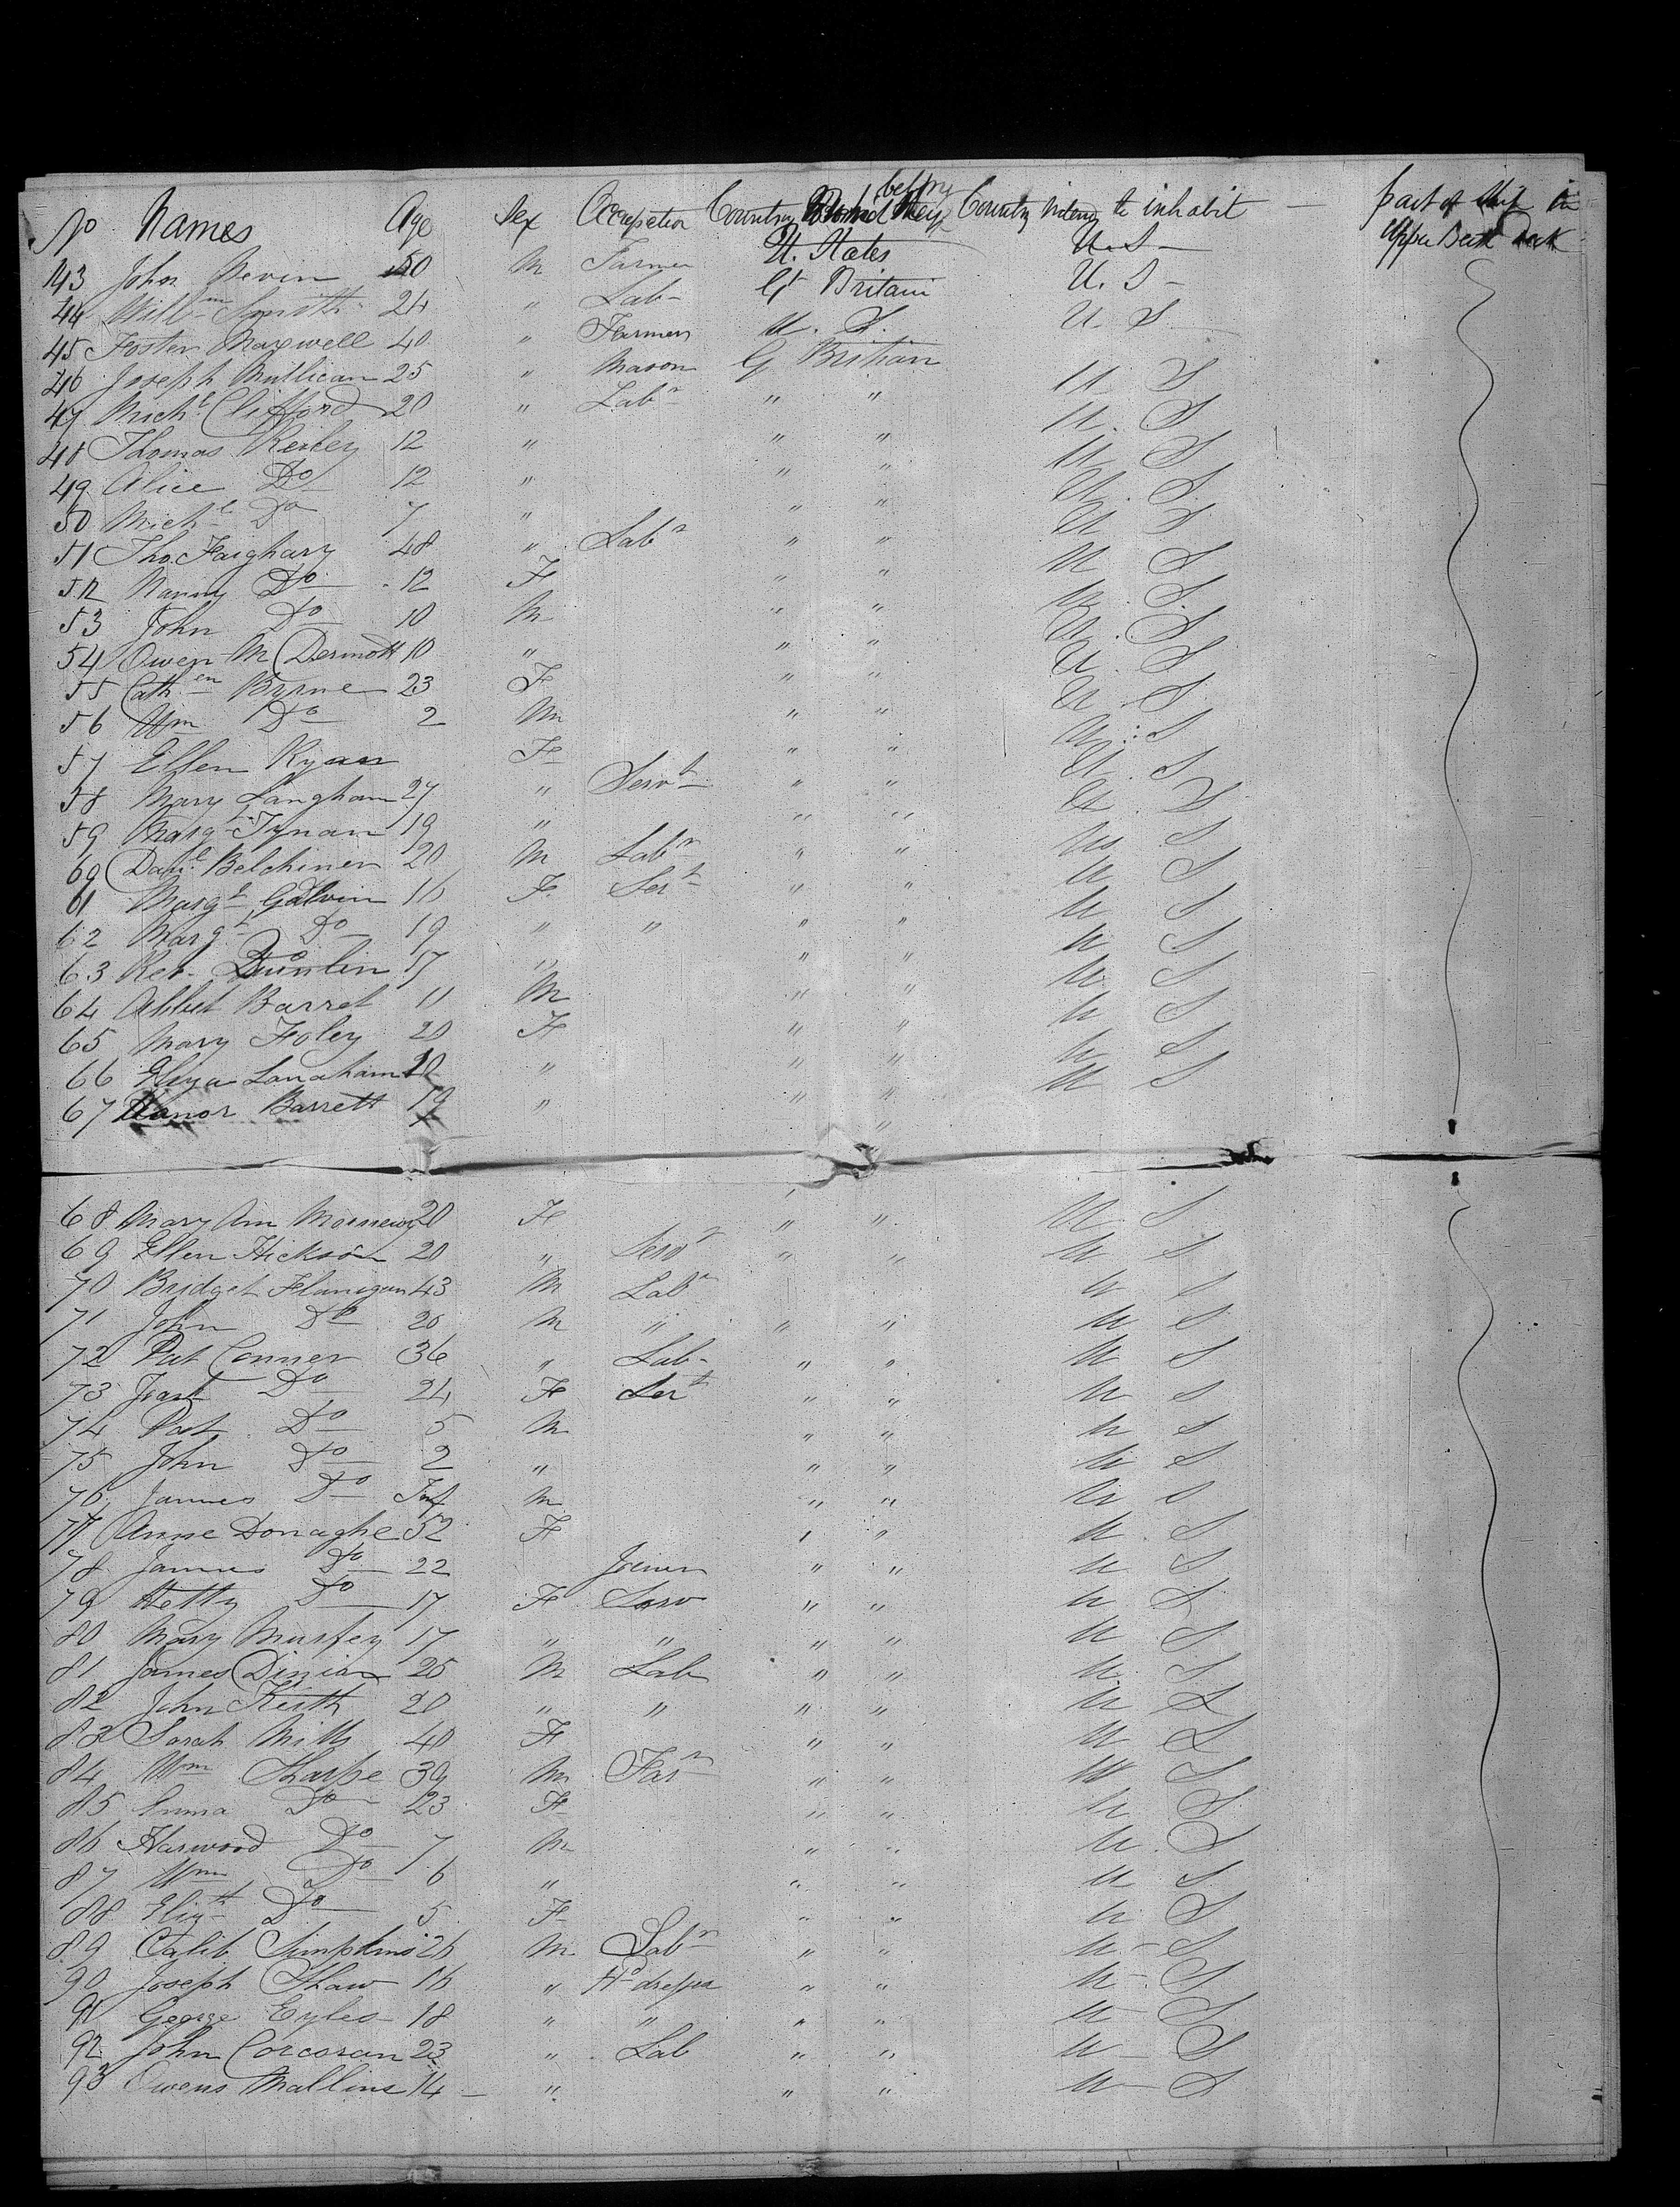 No Names Age Sex Occupation Country to which they belong Country intend to inhabit — part of Ship in
Upper Deck
43 John Nevin 50 M Farmer U. States U.S –
44 Will^m Smith 24 " Lab– G^t Britain U.S –
45 Foster Maxwell 40 " Farmer U.S. U S
46 Joseph Mullican 25 " Mason G Britian
47 Mich^l Clifford 20 " Lab^r " " U S
48 Thomas Reiley 12 " " " U. S
49 Alice Do 12 " " " U S
50 Mich^l Do 7 " " " U. S.
51 Tho. Faighary 48 " Lab^r " " U S
52 Nanny Do 12 F " " U S
53 John Do 10 M " " U. S.
54 Owen Mc Dermott 10 " " " U. S
55 Cath^en Byrne 23 F " " U. S
56 Wm Do 2 M " " U. S
57 Ellen Ryan F " " U. S
58 Mary Langham 27 " Serv^t " " U. S
59 Marg^t Tynan 19 " " " U. S
60 Dan^l Belchiner 20 M Lab^r " " U S
61 Marg^t Galvin 16 F. Ser^t " " U S
62 Marg^t Do 19 " " " " U S
63 17 " " " U S
64 Barret 11 M " " U S
65 Mary Foley 20 F " " U S
66 Eliza Lanaham 20 " " " U S
67 Barrett 19 " " " U S
68 Mary Ann 20 F " " U S
69 Ellen Hickson 20 " Serv^r " " U S
70 Bridget Flanigan 43 M Lab^r U S
71 John Do 20 M " " " U S
72 Pat Conner 36 " Lab– " " U S
73 Do 24 F Ser^t " " U S
74 Pat Do 5 M " " U S
75 John Do 2 " " " U S
76 James Do Inf M " " U S
77 Anne Donaghe 52 F " " U. S
78 James Do 22 Joiner " " U S
79 Hetty Do 17 F Serv " " U S
80 Mary Murfey 17 " " " " U S
81 James Dinian 25 M Lab " " U S
82 John Keith 20 " " " " U S
83 Sarah Mills 40 F " " U S
84 Wm Sharpe 39 M Far^r " " U S
85 Emma Do 23 F " " U S
86 Harwood Do 7 M " " U. S
87 Wm Do 6 " " " U S
88 Eliz^th Do 5 F " " U S
89 Calib Simpkins 26 M. Lab^r " " U – S
90 Joseph Shaw 16 " H^r dresser " " U – S
91 George Eyles 18 " " " " U – S
92 John Corcoran 23 " Lab " " U – S
93 Owens Mallins 14 – " " " U – S